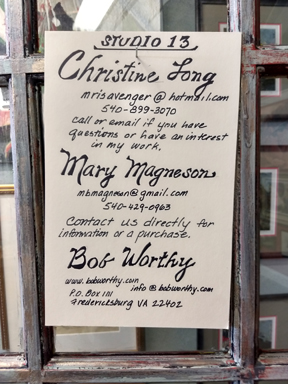 STUDIO 13
Christine Long
mrisavenger@hotmail.com
540-899-3070
Call or email if you have
questions or have an interest
in my work.
Mary Magneson
mbmagneson@gmail.com
540-429-0963
Contact us directly for
information or a purchase.
Bob Worthy
www.bobworthy.com
info@bobworthy.com
P.O. Box 111
Fredericksburg VA 22402